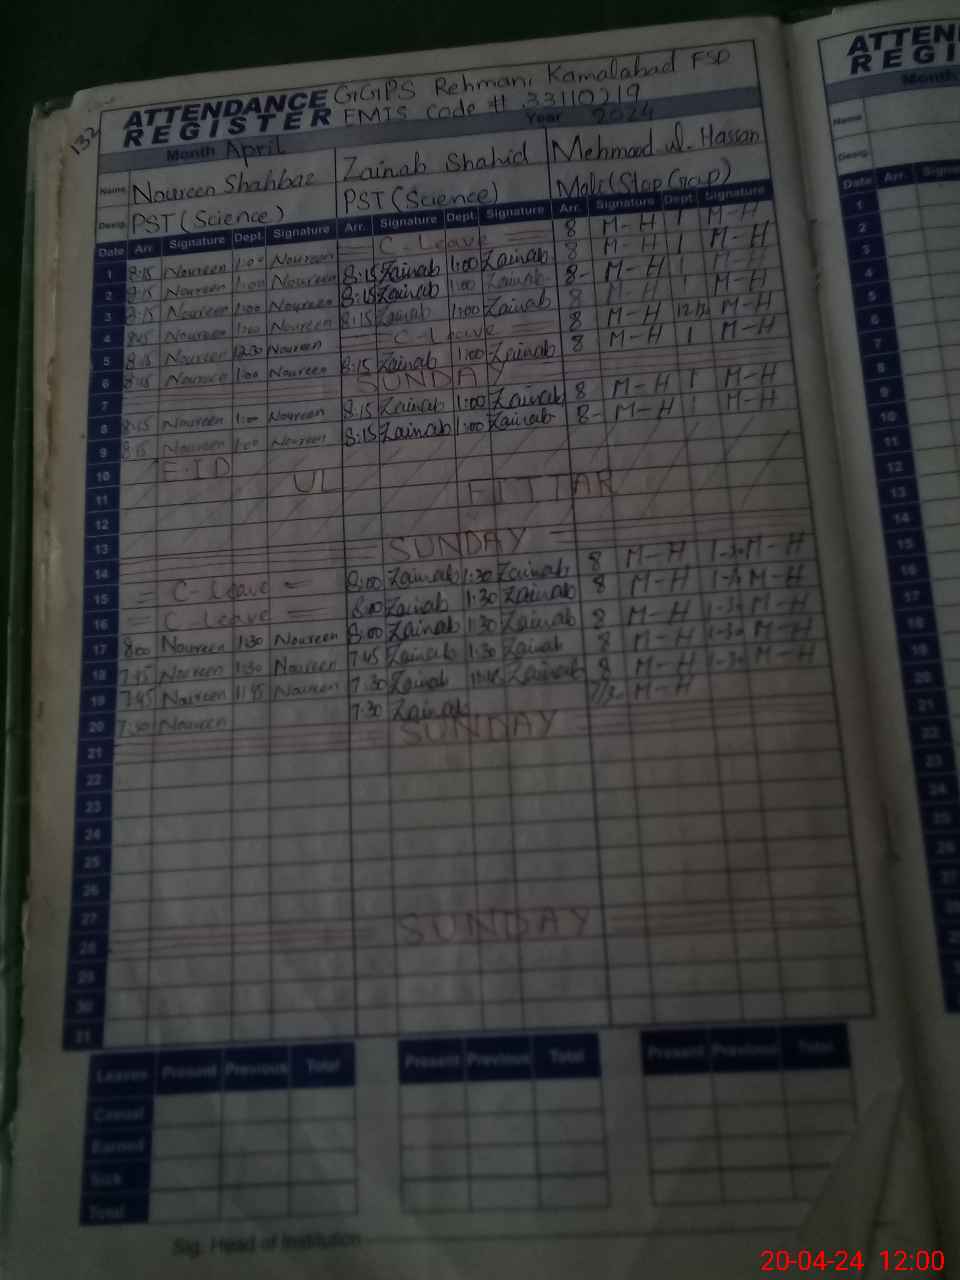 132
ATTENDANCE REGISTER
GGPS Rehmani Kamalabad FSD
EMIS Code # 33110219
Month April Year 2024
Name Noureen Shahbaz Zainab Shahid Mehmood ul Hassan
Desig. PST (Science) PST (Science) Male (Stop Group)
Date Arr. Signature Dept. Signature Arr. Signature Dept. Signature Arr. Signature Dept. Signature
1 8:15 Noureen 1:00 Noureen = C-Leave = 8 M-H 1 M-H
2 8:15 Noureen 1:00 Noureen 8:15 Zainab 1:00 Zainab 8 M-H 1 M-H
3 8:15 Noureen 1:00 Noureen 8:15 Zainab 1:00 Zainab 8- M-H 1 M-H
4 8:15 Noureen 1:00 Noureen 8:15 Zainab 1:00 Zainab 8 M-H 1 M-H
5 8:15 Noureen 12:30 Noureen = C-Leave = 8 M-H M-H
6 8:15 Noureen 1:00 Noureen 8:15 Zainab 1:00 Zainab 8 M-H 1 M-H
7 SUNDAY
8 8:15 Noureen 1:00 Noureen 8:15 Zainab 1:00 Zainab 8 M-H 1 M-H
9 8:15 Noureen 1:00 Noureen 8:15 Zainab 1:00 Zainab 8- M-H 1 M-H
10 E-ID UL FITTAR
11
12
13
14 SUNDAY
15 = C-Leave = 8:00 Zainab 1:30 Zainab 8 M-H 1-30 M-H
16 = C-Leave = 8:00 Zainab 1:30 Zainab 8 M-H M-H
17 8:00 Noureen 1:30 Noureen 8:00 Zainab 1:30 Zainab 8 M-H 1-30 M-H
18 7:45 Noureen 1:30 Noureen 7:45 Zainab 1:30 Zainab 8 M-H 1-30 M-H
19 7:45 Noureen 11:45 Noureen 7:30 Zainab Zainab 8 M-H 1-30 M-H
20 7:30 Noureen 7:30 Zainab M-H
21 SUNDAY
22
23
24
25
26
27
28 SUNDAY
29
30
31
Leaves Present Previous Total Present Previous Total Present Previous Total
Casual
Earned
Sick
Total
Sig. Head of Institution
ATTEN
REGI
Month
Name
Desig.
Date Arr.
1
2
3
4
5
6
7
8
9
10
11
12
13
14
15
16
17
18
19
20
21
22
23
24
25
26
27
20-04-24 12:00